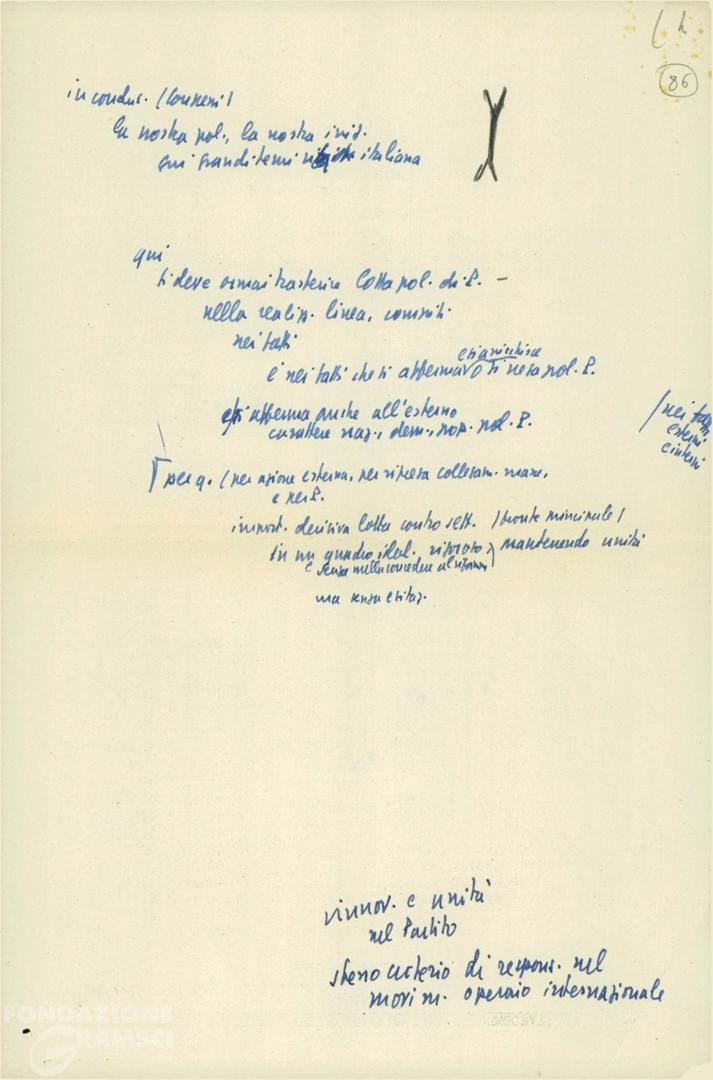 86
in conclus.
la nostra pol., la nostra iniz.
sui grandi temi italiana
qui
si deve ormai trasferire lotta pol. di P. –
nella realizz. linea, compiti
nei fatti
e arricchisce
è nei fatti che si afferma o si nega pol. P.
e si afferma anche all'esterno
carattere naz., dem., pop. pol. P.
/ nei fatti
esterni
e interni
per q. (per azione esterna, per ripresa collegam. masse,
e nel P.
import. decisiva lotta contro sett. (fronte principale)
in un quadro ideol. mantenendo unità
e senza nulla concedere al
ma senza esitaz.
rinnov. e unità
nel Partito
stesso criterio di respons. nel
movim. operaio internazionale
FONDAZIONE
GRAMSCI